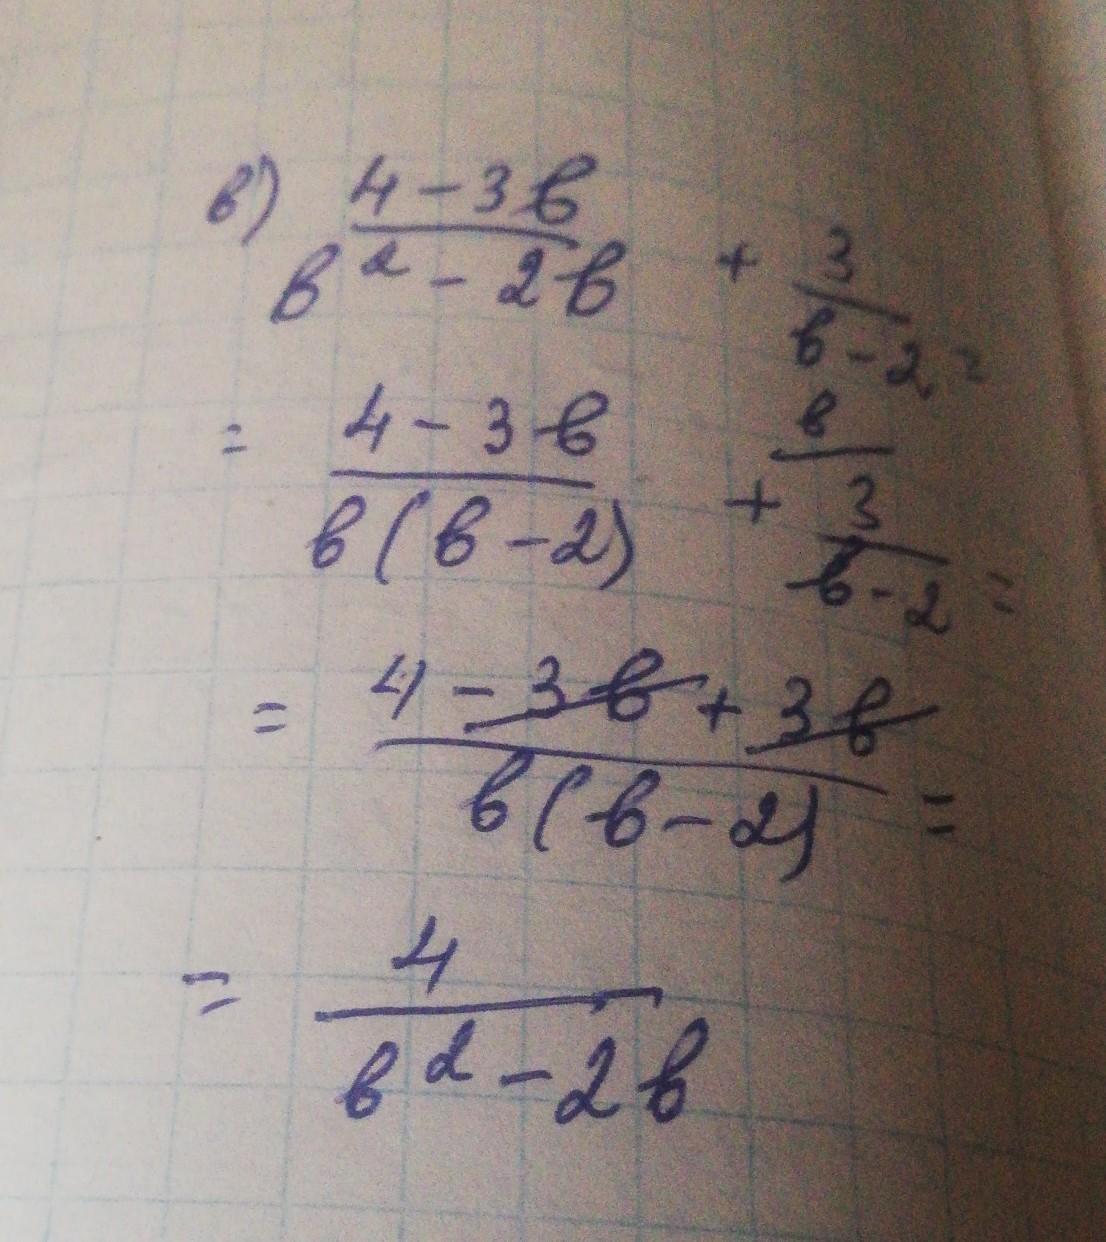 в) (4 - 3в)/(в² - 2в) + 3/(в - 2) =
= (4 - 3в)/(в(в - 2)) + в/ 3/(в - 2) =
= (4 - 3в + 3в)/(в(в - 2)) =
= 4/(в² - 2в)